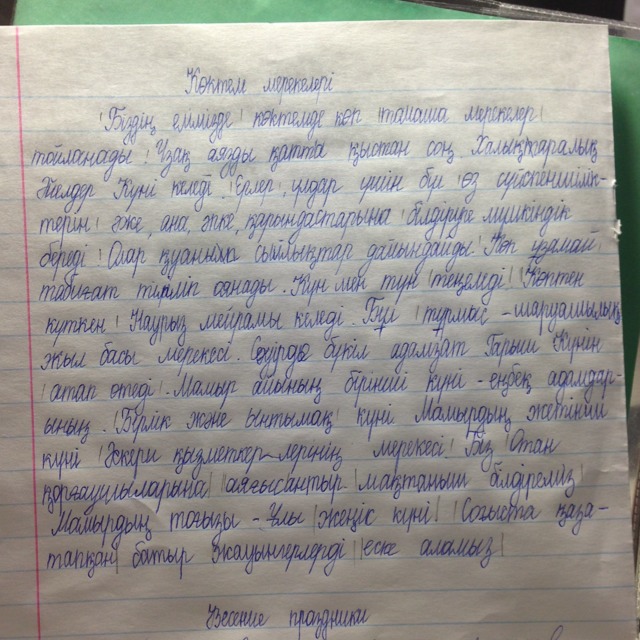 Көктем мерекелері
Біздің елміеде көктемде көп тамаша мерекелер
тойланады Ұзақ аязды қатта қыстан соң Халықжаралық
Әйелдер Күні келеді. Ерлер, ұлдар үшін бұл өз сүйкеншілік-
терін әже, ана, әпке, қарындастарына білдіруке мүшкіндік
береді Олар қуаныжа сыйлықтар дайындайды. Көп ұзамай
табиғат тірліп оянады. Күн мен түн теңеледі Көптен
күткен Наурыз мейрамы келеді. Бұл тұрмыс - шаруашылық
жыл басы мерекесі. Сәуірде бүкіл адамзат Ғарыш Күнін
атап өтеді. Мамыр айының бірінші күні - еңбек адамдар-
ының. Бірлік және ынтымақ күні Мамырдың жетінші
күні Әскери қызметкер-лерінің мерекесі Біз Отан
қорғаушыларына мақтаныш білдіреміз
Мамырдың тоғызы - Ұлы жеңіс күні Соғыста қаза-
тапқан батыр жауынгерлерді еске аламыз
Весение праздники